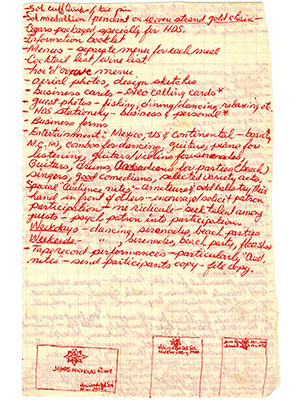 - Sol cuff links & tie pin
- Sol medallion/pendant on woven strand gold chain -
- Cigars packaged specially for HDS.
- Information booklet
- Menus - separate menu for each meal
- Cocktail list/wine list
- menu
- aerial photos, design sketches
- business cards - calling cards*
- guest photos - fishing, dining/dancing, relaxing etc.
- Has stationery - business & personal*
- Business forms
- Entertainment: Mexico, US & Continental - basic
N.C.(s), combos for dancing, guitars, piano for
listening, guitars/violins for serenades
Guitars, drums, for parties (beach)
singers, good comedians, selected variety acts
"special" Audience nites - amateurs & oddballs try their
hand in front of others - encourage/solicit patron
participation - no ridicule - seek talent among
guests - psych patron into participation.
Weekdays - dancing, serenades, beach parties
Weekends - " , serenades, beach party, floor show
- Tape record performances - particularly "Aud.
nites - send participants copy - file copy.
JAMES NICHOLAS ROWE
HACIENDA DEL SOL
HACIENDA DEL SOL